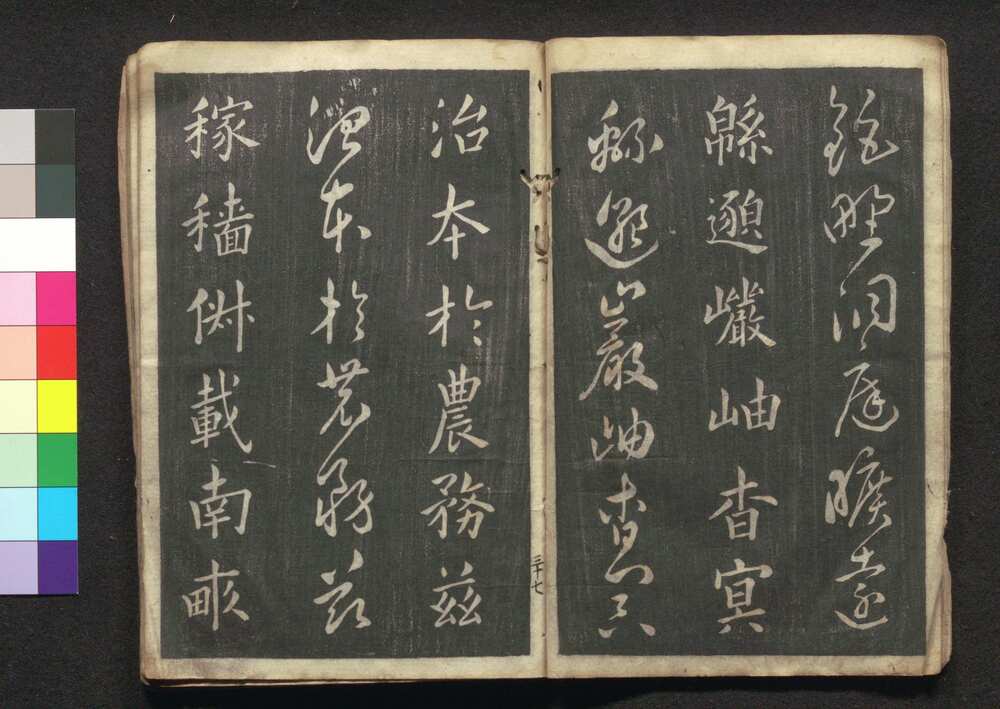 鉅野洞庭曠遠
緜邈巖岫杳冥
緜邈巖岫杳冥
三十七
治本於農務茲
治本於農務茲
稼穡俶載南畝